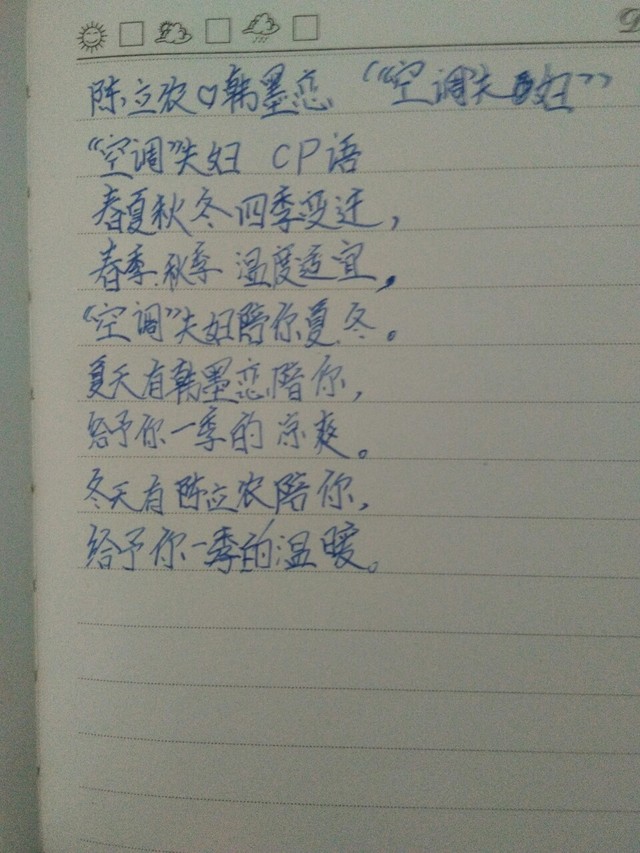 陈立农♡韩墨恋 “空调夫妇”
“空调”夫妇 CP语
春夏秋冬四季变迁，
春季.秋季 温度适宜，
“空调”夫妇陪你夏.冬。
夏天有韩墨恋陪你，
给予你一季的凉爽。
冬天有陈立农陪你，
给予你一季的温暖。